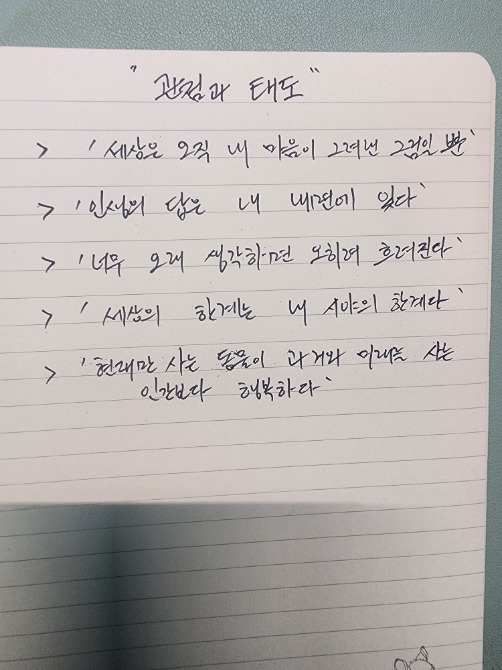 "관점과 태도"
> '세상은 오직 내 마음이 그려낸 그림일 뿐'
> '인생의 답은 내 내면에 있다'
> '너무 오래 생각하면 오히려 흐려진다'
> '세상의 한계는 내 시야의 한계다'
> '현재만 사는 동물이 과거와 미래를 사는
인간보다 행복하다'